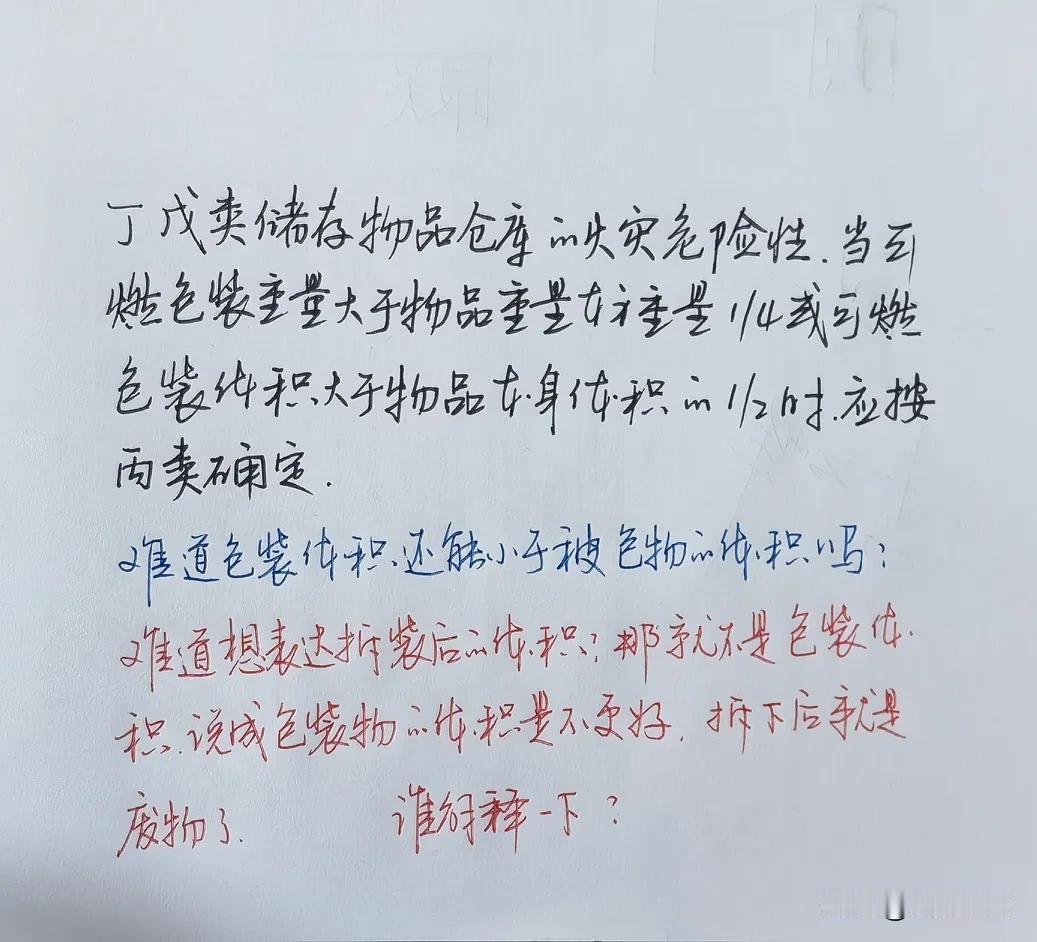 丁戊类储存物品仓库的火灾危险性.当可
燃包装重量大于物品重量本才重量1/4或可燃
包装体积大于物品本身体积的1/2时.应按
丙类确定.
难道包装体积还能小于被包物的体积吗?
难道想表达拆装后的体积?那就不是包装体
积.说成包装物的体积是不更好.拆下后就是
废物了. 谁解释一下?